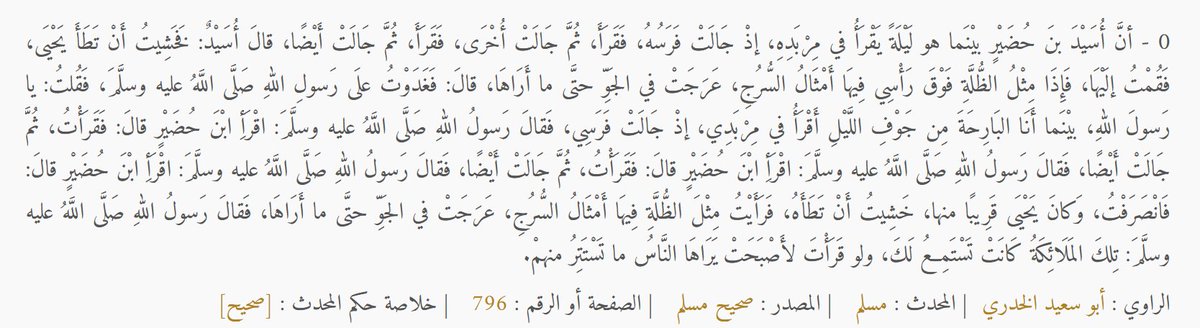 0 - أنَّ أُسَيْدَ بنَ حُضَيْرٍ بيْنَما هو لَيْلَةً يَقْرَأُ في مِرْبَدِهِ، إذْ جَالَتْ فَرَسُهُ، فَقَرَأَ، ثُمَّ جَالَتْ أُخْرَى، فَقَرَأَ، ثُمَّ جَالَتْ أَيْضًا، قالَ أُسَيْدٌ: فَخَشِيتُ أَنْ تَطَأَ يَحْيَى،
فَقُمْتُ إلَيْهَا، فَإِذَا مِثْلُ الظُّلَّةِ فَوْقَ رَأْسِي فِيهَا أَمْثَالُ السُّرُجِ، عَرَجَتْ في الجَوِّ حتَّى ما أَرَاهَا، قالَ: فَغَدَوْتُ علَى رَسولِ اللهِ صَلَّى اللَّهُ عليه وسلَّمَ، فَقُلتُ: يا
رَسولَ اللهِ، بيْنَما أَنَا البَارِحَةَ مِن جَوْفِ اللَّيْلِ أَقْرَأُ في مِرْبَدِي، إذْ جَالَتْ فَرَسِي، فَقالَ رَسولُ اللهِ صَلَّى اللَّهُ عليه وسلَّمَ: اقْرَأِ ابْنَ حُضَيْرٍ قالَ: فَقَرَأْتُ، ثُمَّ
جَالَتْ أَيْضًا، فَقالَ رَسولُ اللهِ صَلَّى اللَّهُ عليه وسلَّمَ: اقْرَأِ ابْنَ حُضَيْرٍ قالَ: فَقَرَأْتُ، ثُمَّ جَالَتْ أَيْضًا، فَقالَ رَسولُ اللهِ صَلَّى اللَّهُ عليه وسلَّمَ: اقْرَأِ ابْنَ حُضَيْرٍ قالَ:
فَانْصَرَفْتُ، وكانَ يَحْيَى قَرِيبًا منها، خَشِيتُ أَنْ تَطَأَهُ، فَرَأَيْتُ مِثْلَ الظُّلَّةِ فِيهَا أَمْثَالُ السُّرُجِ، عَرَجَتْ في الجَوِّ حتَّى ما أَرَاهَا، فَقالَ رَسولُ اللهِ صَلَّى اللَّهُ عليه
وسلَّمَ: تِلكَ المَلَائِكَةُ كَانَتْ تَسْتَمِعُ لَكَ، ولو قَرَأْتَ لأَصْبَحَتْ يَرَاهَا النَّاسُ ما تَسْتَتِرُ منهمْ.
الراوي : أبو سعيد الخدري | المحدث : مسلم | المصدر : صحيح مسلم | الصفحة أو الرقم : 796 | خلاصة حكم المحدث : [صحيح]